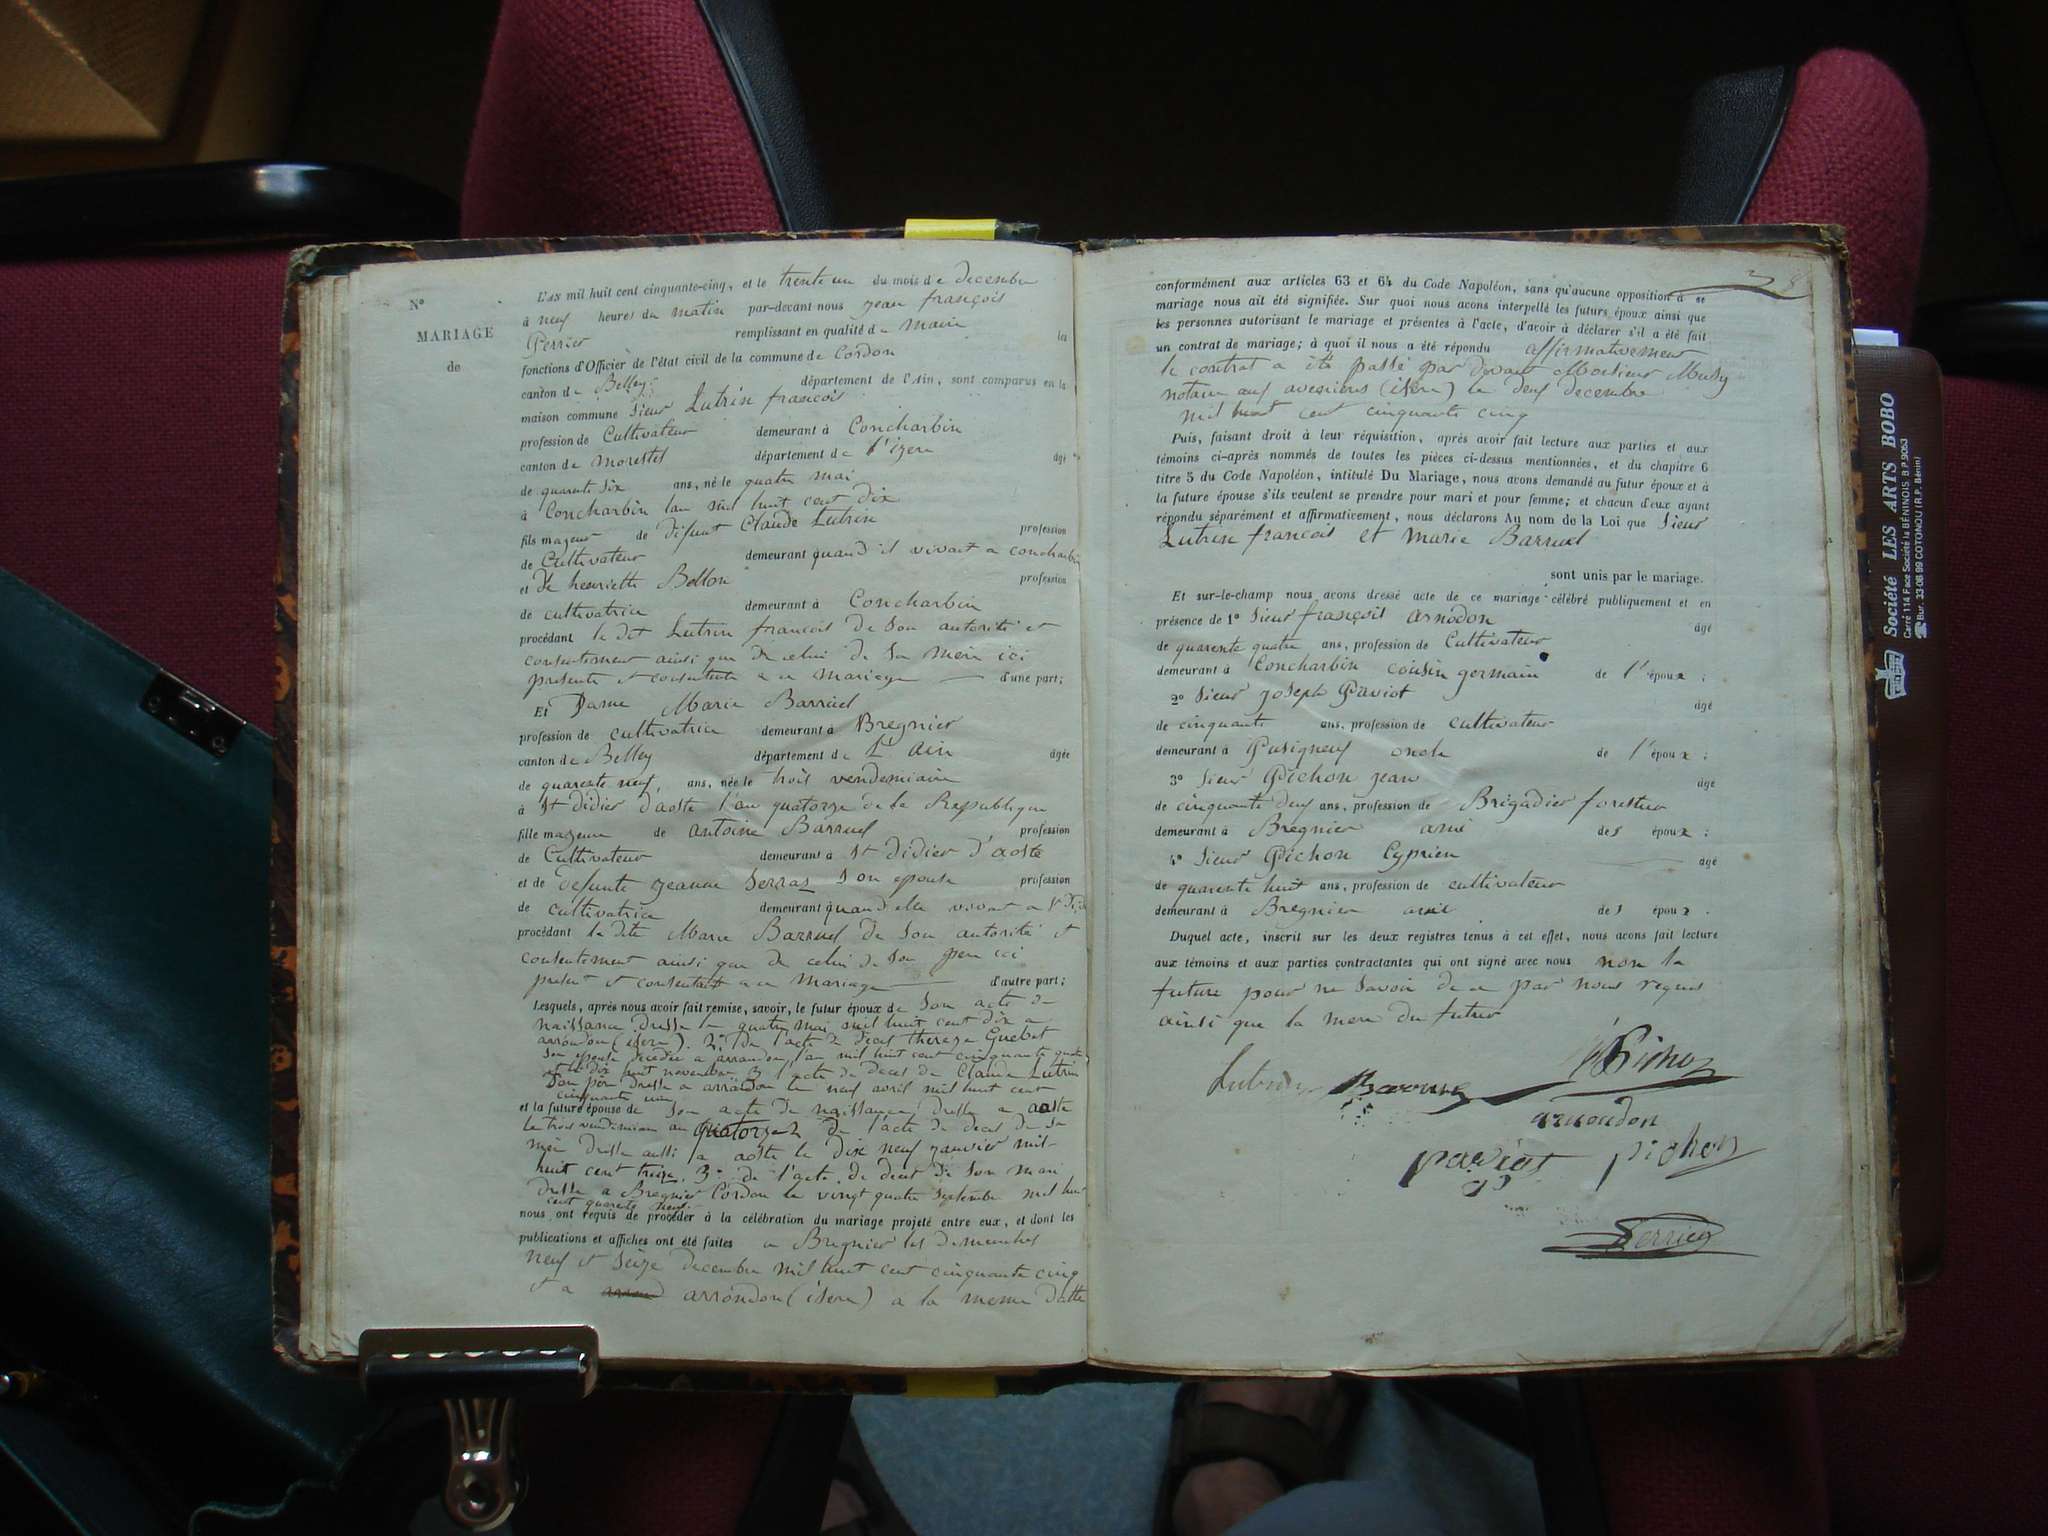 N°
MARIAGE
de
L'AN mil huit cent cinquante-cinq, et le trente un du mois de decembre
à neuf heures du matin par-devant nous jean françois
Perrier remplissant en qualité de maire les
fonctions d'Officier de l'état civil de la commune de Cordon
canton de Belley département de l'Ain, sont comparus en la
maison commune sieur Lutrin francois
profession de Cultivateur demeurant à Concharbin
canton de morestel département de l'izere âgé
de quarente six ans, né le quatre mai
à Concharbin lan mil huit cent dix
fils majeur de défunt Claude Lutrin profession
de Cultivateur demeurant quand il vivait a concharbin
et de henriette Bellon profession
de cultivatrice demeurant à Concharbin
procédant le dit Lutrin francois de son autorité et
consentement ainsi que de celui de sa mere ici
presente et consentente a ce mariage d'une part;
Et Dame Marie Barruel
profession de cultivatrice demeurant à Bregnier
canton de Belley département de L'ain âgée
de quarente neuf, ans, née le trois vendemiaire
à St didier d'aoste l'an quatorze de la Republique
fille majeure de antoine Barruel profession
de Cultivateur demeurant à St didier d'aoste
et de defunte jeanne Serraz son epouse profession
de cultivatrice demeurant à quand elle vivait a St Did
procédant la dite Marie Barruel de son autorité et
consentement ainsi que de celui de son pere ici
present et consentant a ce mariage d'autre part;
Lesquels, après nous avoir fait remise, savoir, le futur époux de son acte de
naissance dresse le quatre mai mil huit cent dix a
arrondon (isere). 2° de l'acte de deces therese Guebat
son epouse decedee a arrandon, l'an mil huit cent cinquante quatre
et le dix huit novembre 3 l'acte de deces de Claude Lutrin
son père dresse a arrandon le neuf avril mil huit cent
cinquante un
et la future épouse de son acte de naissance dresse a aoste
le trois vendemiaire an quatorze 2 de l'acte de deces de sa
mère dresse aussi a aoste le dix neuf janvier mil
huit cent treize. 3° de l'acte de deces de son mari
dresse a Bregnier Cordon le vingt quatre septembre mil huit
cent quarente neuf
nous ont requis de procéder à la célébration du mariage projeté entre eux, et dont les
publications et affiches ont été faites a Bregnier les dimenches
neuf et seize decembre mil huit cent cinquante cinq
et a arrondon (isere) a la meme datte
8
conformément aux articles 63 et 64 du Code Napoléon, sans qu'aucune opposition à se
mariage nous ait été signifiée. Sur quoi nous avons interpellé les futurs époux ainsi que
les personnes autorisant le mariage et présentes à l'acte, d'avoir à déclarer s'il a été fait
un contrat de mariage; à quoi il nous a été répondu affirmativement
le contrat a été passé par devant Monsieur Musy
notaire aux avenieres (isere) le deux decembre
mil huit cent cinquante cinq
Puis, faisant droit à leur réquisition, après avoir fait lecture aux parties et aux
témoins ci-après nommés de toutes les pièces ci-dessus mentionnées, et du chapitre 6
titre 5 du Code Napoléon, intitulé Du Mariage, nous avons demandé au futur époux et à
la future épouse s'ils veulent se prendre pour mari et pour femme; et chacun d'eux ayant
répondu séparément et affirmativement, nous déclarons Au nom de la Loi que sieur
Lutrin francois et marie Barruel
sont unis par le mariage.
Et sur-le-champ nous avons dressé acte de ce mariage célébré publiquement et en
présence de 1° Sieur françois arnodon âgé
de quarente quatre ans, profession de Cultivateur
demeurant à Concharbin cousin germain de l'époux ;
2° Sieur joseph Paviot âgé
de cinquante ans, profession de cultivateur
demeurant à Pusigneuf oncle de l'époux ;
3° Sieur Pichon jean âgé
de cinquante deux ans, profession de Brigadier forestier
demeurant à Bregnier ami des époux ;
4° Sieur Pichon Cyprien âgé
de quarente huit ans, profession de cultivateur
demeurant à Bregnier ami des époux .
Duquel acte, inscrit sur les deux registres tenus à cet effet, nous avons fait lecture
aux témoins et aux parties contractantes qui ont signé avec nous non la
future pour ne savoir de ce par nous requis
ainsi que la mere du futur
Lutrin Barruel Pichon
arnoudon
paviot pichon
Perrier
Société LES ARTS BOBO
Carré 114 Face Société la BÉNINOIS. B.P. 9063
Bur. 33-08-99 COTONOU (R.P. Bénin)